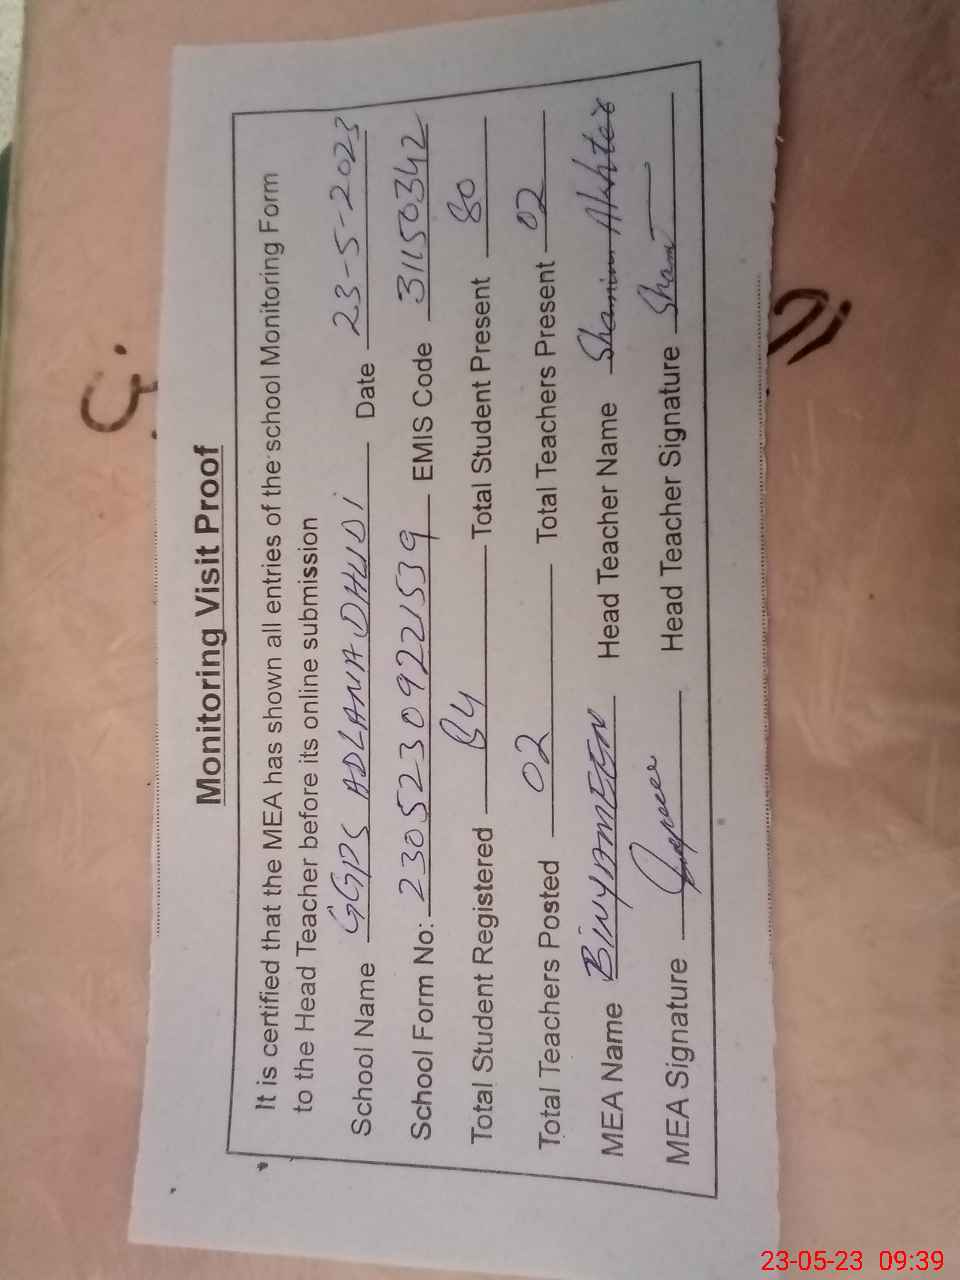 Monitoring Visit Proof
It is certified that the MEA has shown all entries of the school Monitoring Form
to the Head Teacher before its online submission
School Name GGPS ADLANA DHUDI Date 23-5-2023
School Form No: 23052309221539 EMIS Code 31150342
Total Student Registered 84 Total Student Present 80
Total Teachers Posted 02 Total Teachers Present 02
MEA Name BINYAMEEN Head Teacher Name Shamim Akhter
MEA Signature Head Teacher Signature Sham
23-05-23 09:39